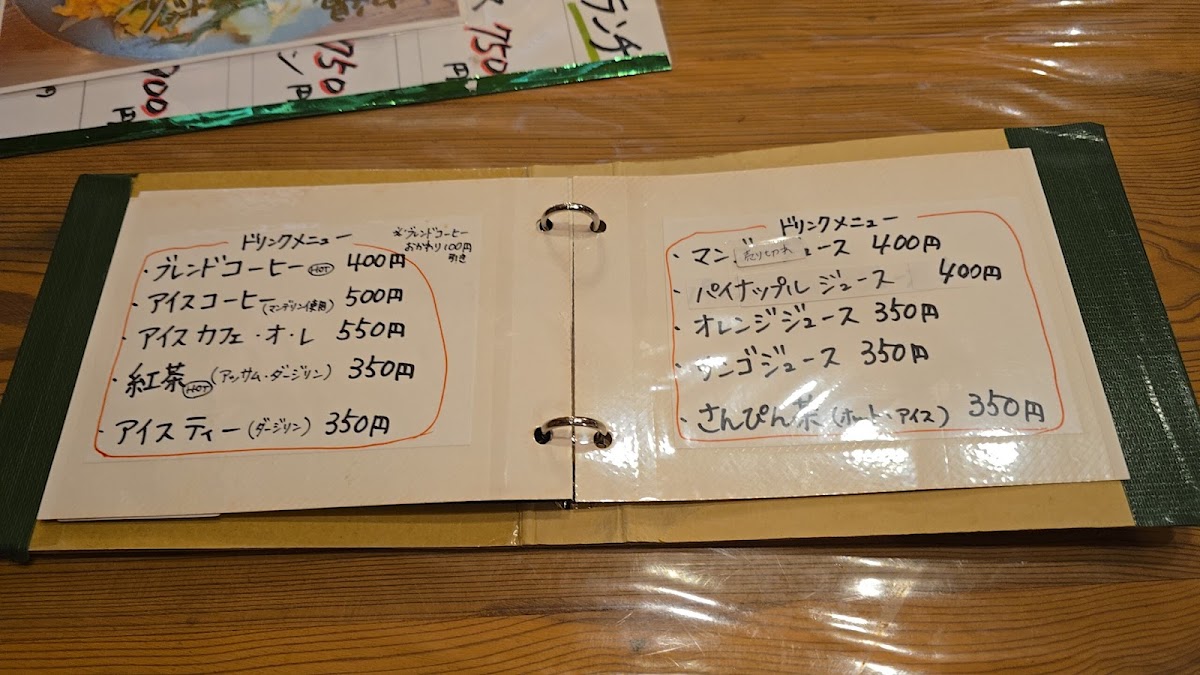 ランチ
750
円
750
円
円
ドリンクメニュー
※ブレンドコーヒー
おかわり100円
引き
・ブレンドコーヒー HOT 400円
・アイスコーヒー(マンデリン使用) 500円
・アイスカフェ・オ・レ 550円
・紅茶 HOT (アッサム・ダージリン) 350円
・アイスティー(ダージリン) 350円
ドリンクメニュー
・マン 売り切れ ュース 400円
・パイナップルジュース 400円
・オレンジジュース 350円
・リンゴジュース 350円
・さんぴん茶(ホット・アイス) 350円